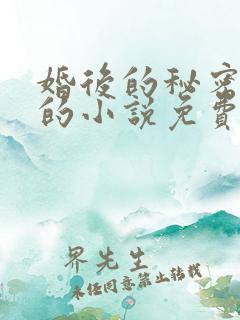 婚后的秘密
的小说免费
界先生
未经同意禁止转载